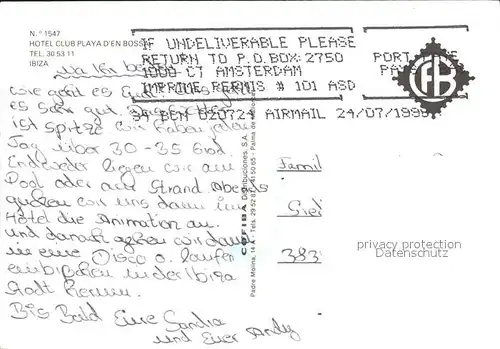 N.º 1547
HOTEL CLUB PLAYA D'EN BOSSA
TEL. 30 53 11
IBIZA
IF UNDELIVERABLE PLEASE
RETURN TO P.O.BOX:2750
1000 CT AMSTERDAM
IMPRIME PERMIS # 101 ASD
PORT
94 BEN 020724 AIRMAIL 24/07/1998
Na Ihr
wie geht es Euch
es sehr gut. Das
ist spitze wir haben jeden
Tag über 30-35 Grad.
Endweder liegen wir am
Pool oder am Strand Abends
gucken wir uns dann im
Hotel die Animation an.
und danach gehen wir dann
in eine Disco o. laufen
ein bißchen in der Ibiza
Stadt herum.
Bis Bald Eure Sandra
und Euer Andy
COFIBA Distribuciones, S.A.
Padre Molina, 14 A - Tels. 29 52 - 41 50 65 - Palma de
Famil
383
privacy protection
Datenschutz